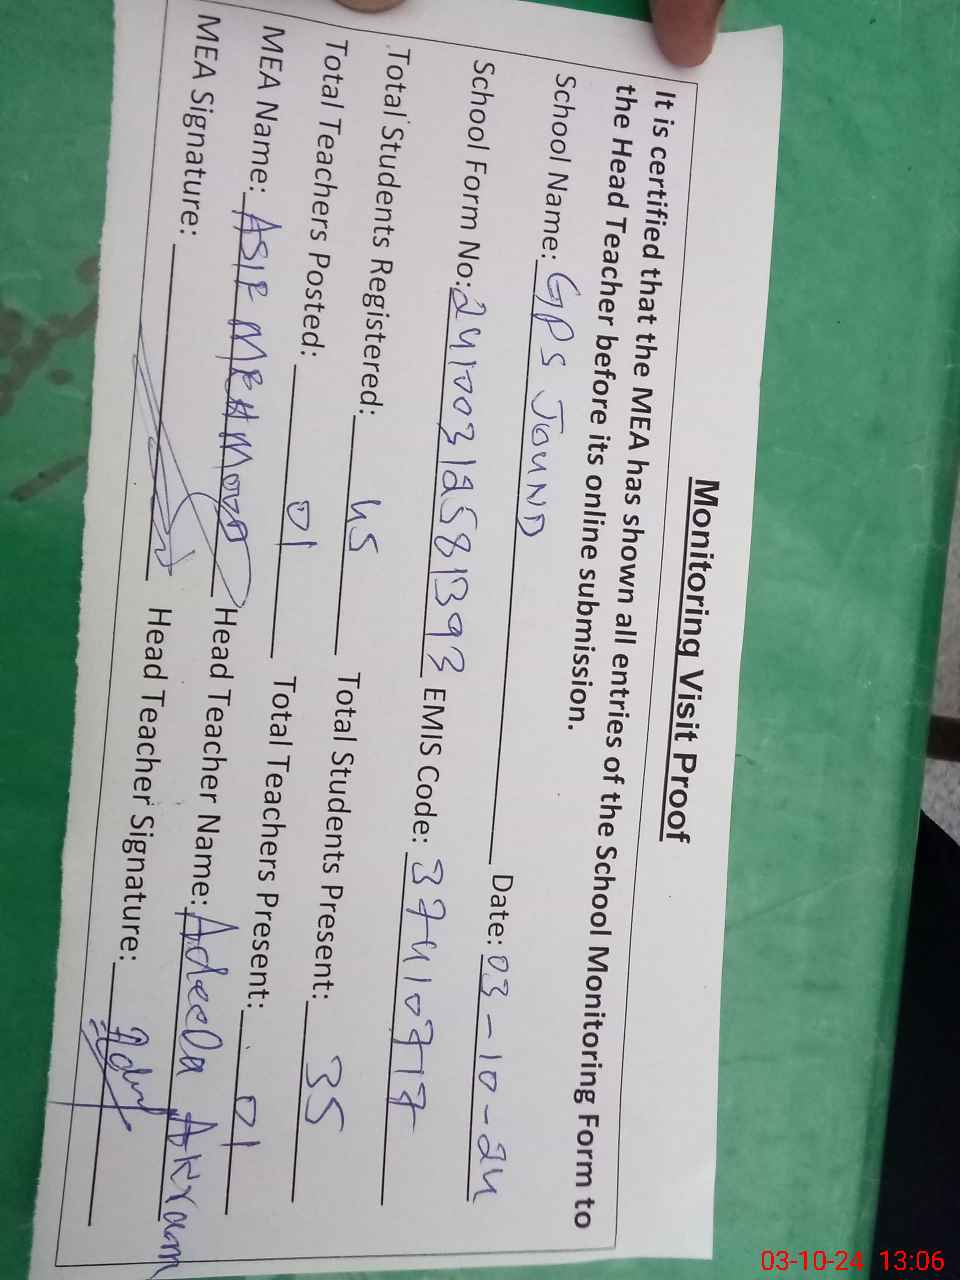 Monitoring Visit Proof
It is certified that the MEA has shown all entries of the School Monitoring Form to
the Head Teacher before its online submission.
School Name: GPS JOUND Date: 03-10-24
School Form No: 24100312581393 EMIS Code: 37410717
Total Students Registered: 45 Total Students Present: 35
Total Teachers Posted: 01 Total Teachers Present: 01
MEA Name: ASIF MEHMOOD Head Teacher Name: Adeela Akram
MEA Signature: Head Teacher Signature:
03-10-24 13:06